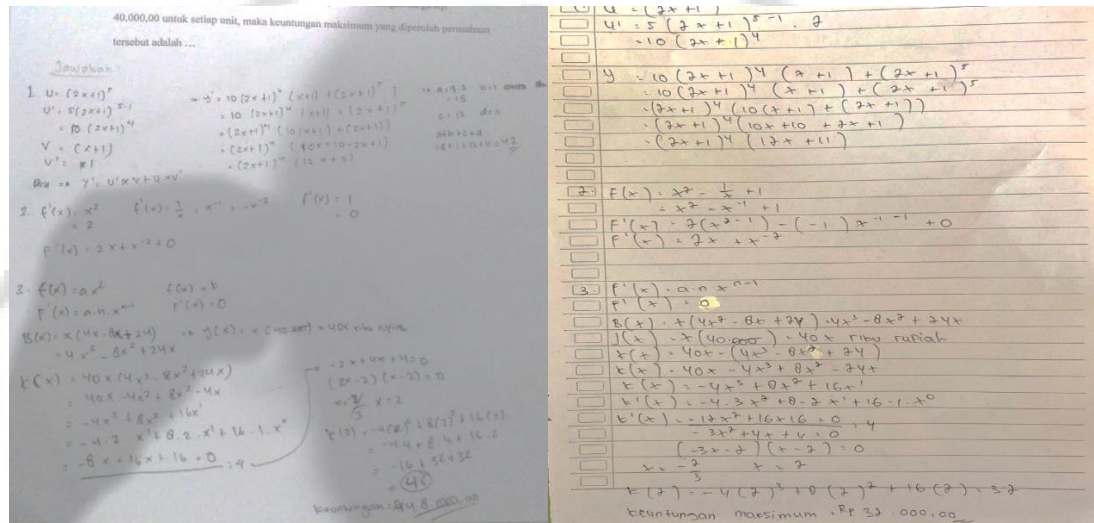 40.000,00 untuk setiap unit, maka keuntungan maksimum yang diperoleh perusahaan
tersebut adalah ...
Jawaban:
1. U = (2x+1)⁵
U' = 5(2x+1)⁵⁻¹
= 10 (2x+1)⁴
V = (x+1)
V' = 1
y' = U'xV+UxV'
→ y' = 10 (2x+1)⁴ (x+1) + (2x+1)⁵ 1
= 10 (2x+1)⁴ (x+1) + (2x+1)⁵
= (2x+1)⁴ (10(x+1) + (2x+1))
= (2x+1)⁴ (10x+10+2x+1)
= (2x+1)⁴ (12x+11)
c = 12
a+b+c+d
2. f'(x) = x²
= 2
f'(x) = 1/x = x⁻¹ = -x⁻²
f'(x) = 1
= 0
F'(x) = 2x + x⁻² + 0
3. f(x) = ax²
f(x) = k
F'(x) = a.n.xⁿ⁻¹
F'(x) = 0
B(x) = x(4x-8x+24) → j(x) = x(40.000) = 40x ribu rupiah
= 4x² - 8x² + 24x
k(x) = 40x (4x² - 8x² + 24x)
= 40x - 4x² + 8x² - 4x
= -4x² + 8x² + 16x'
= -4.2 x' + 8.2 - x' + 16.1.x°
= -8x + 16x + 16 = 0 : 4
-2x + 4x + 4 = 0
(3x-2) (x-2) = 0
x = 2/3 x = 2
k(2) = -4(2)² + 8(2)² + 16(2)
= -4.4 + 8.4 + 16.2
= -16 + 32 + 32
= 48
Keuntungan: 48.000,00
U = (2x+1)
U' = 5(2x+1)⁵⁻¹ . 2
= 10 (2x+1)⁴
y = 10(2x+1)⁴ (x+1) + (2x+1)⁵
= 10(2x+1)⁴ (x+1) + (2x+1)⁵
= (2x+1)⁴ (10(x+1) + (2x+1))
= (2x+1)⁴ (10x+10 + 2x+1)
= (2x+1)⁴ (12x+11)
2. f(x) = x² - 1/x + 1
= x² - x⁻¹ + 1
F'(x) = 2(x²⁻¹) - (-1) x⁻¹⁻¹ + 0
F'(x) = 2x + x⁻²
3. f'(x) = a.n x ⁿ⁻¹
f'(x) = 0
B(x) = x(4x² - 8x + 24) = 4x³ - 8x² + 24x
J(x) = x(40.000) = 40x ribu rupiah
k(x) = 40x - (4x³ - 8x² + 24)
k(x) = 40x - 4x³ + 8x² - 24x
k(x) = -4x³ + 8x² + 16x'
k'(x) = -4.3x² + 8-2x' + 16.1.x⁰
k'(x) = -12x² + 16x16 = 0
-3x² + 4x + 4 = 0 = 4
(-3x-2) (x-2) = 0
x = -2/3 x = 2
k(2) = -4(2)³ + 8(2)² + 16(2) = 32
keuntungan maksimum = Rp 32.000,00